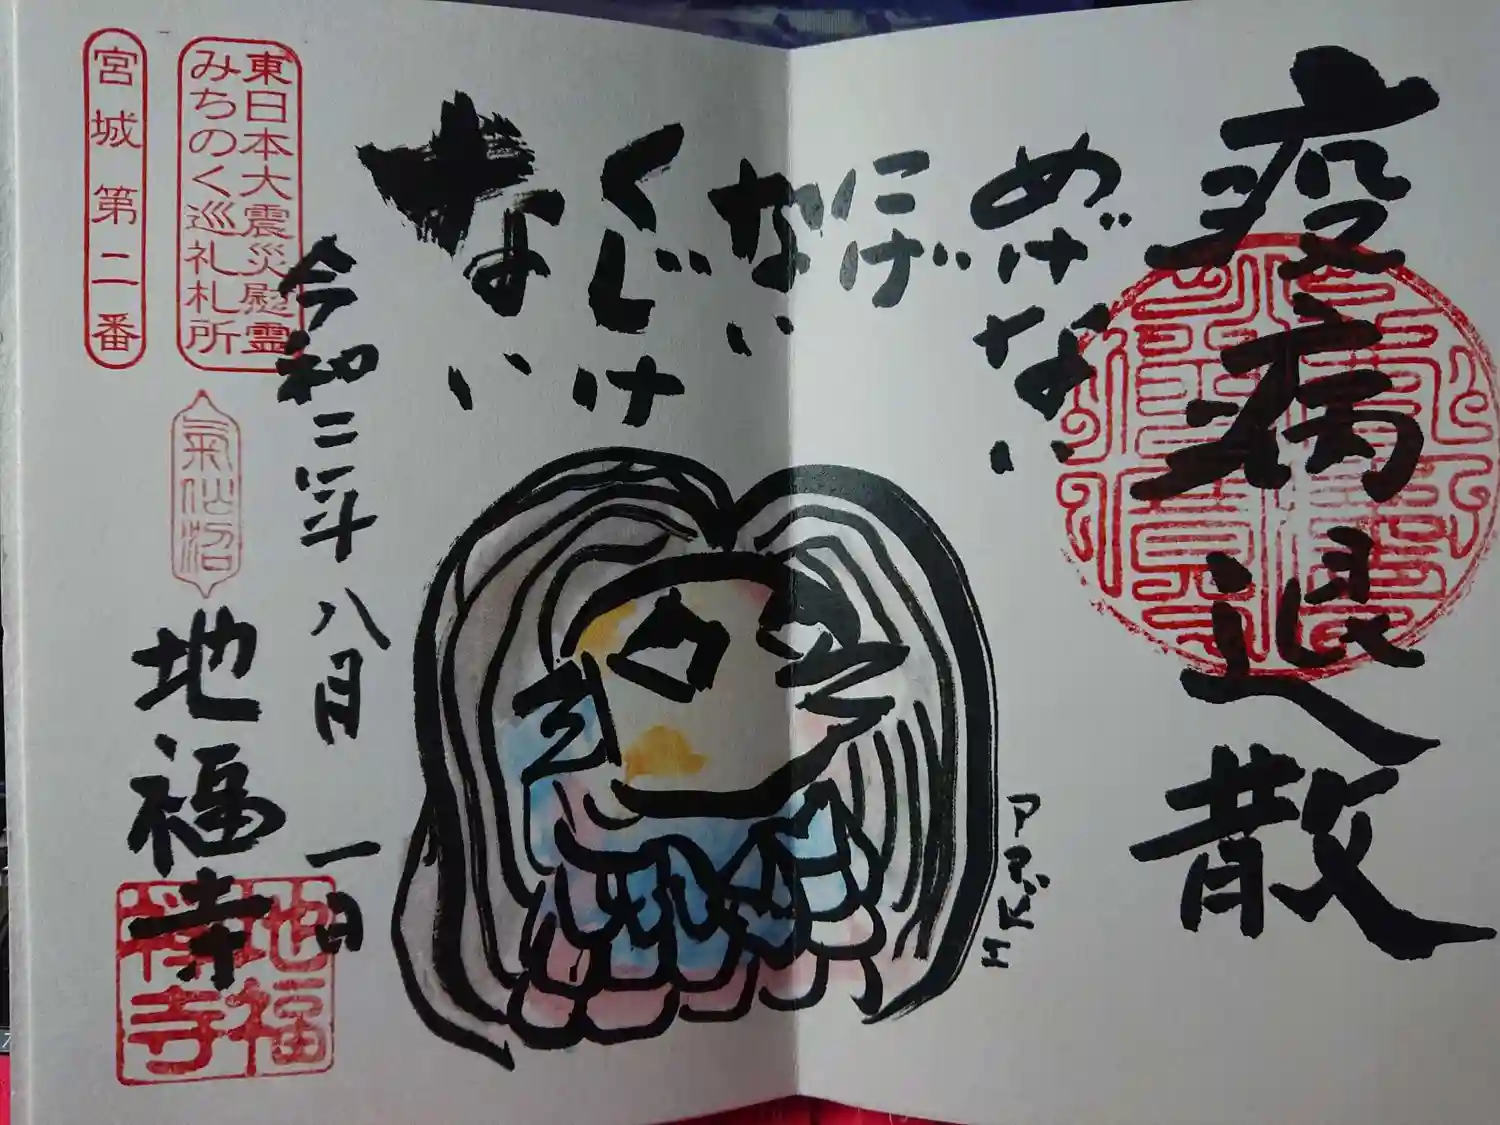 疫病退散
めげない
にげ
ない
くじけ
ない
アマビエ
令和二年八月一日
東日本大震災慰霊
みちのく巡礼札所
宮城第二番
氣仙沼
地福寺
地福
禅寺